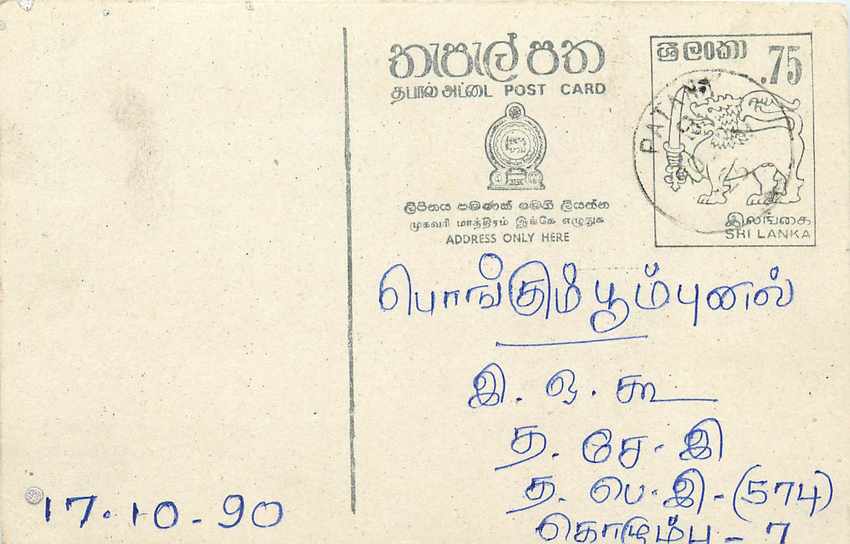 තැපැල් පත
தபால் அட்டை POST CARD
ලිපිනය පමණක් මෙහි ලියන්න
முகவரி மாத்திரம் இங்கே எழுதுக
ADDRESS ONLY HERE
ශ්‍රී ලංකා .75
இலங்கை
SRI LANKA
பொங்கும் பூம்புனல்
இ. ஒ. கூ
த. சே. இ
த. பெ. இ - (574)
கொழும்பு - 7
17.10-90